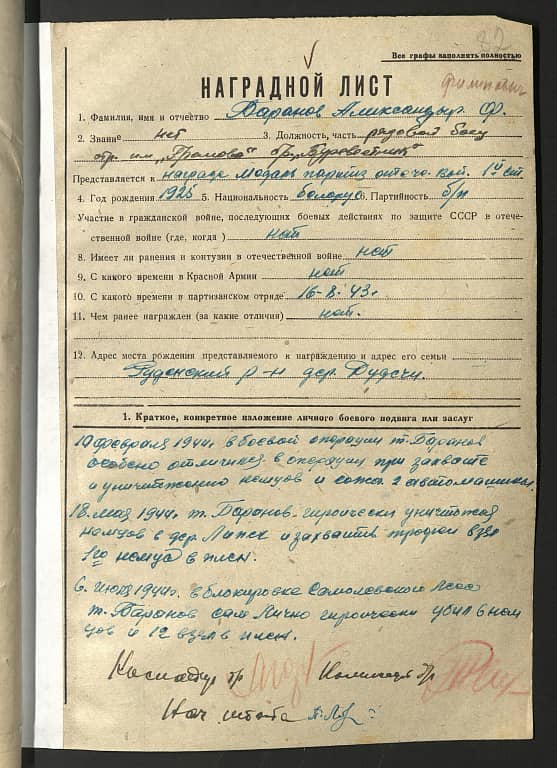 82
Все графы заполнять полностью
НАГРАДНОЙ ЛИСТ
Филипович
1. Фамилия, имя и отчество Баранов Александр Ф.
2. Звание нет 3. Должность, часть рядовой боец
отр. им. „Громова“ бр. „Буревестник“
Представляется к награде Медаль партиз. отеч. вой. 1ой ст.
4. Год рождения 1925 5. Национальность белорус 6. Партийность б/п
Участие в гражданской войне, последующих боевых действиях по защите СССР в отече-
ственной войне (где, когда) нет
8. Имеет ли ранения и контузии в отечественной войне нет
9. С какого времени в Красной Армии нет
10. С какого времени в партизанском отряде 16-8-43 г.
11. Чем ранее награжден (за какие отличия) нет.
12. Адрес места рождения представляемого к награждению и адрес его семьи
Руденский р-н дер. Дудичи.
1. Краткое, конкретное изложение личного боевого подвига или заслуг
февраля 1944 г. в боевой операции т. Баранов
особено отличился в операции при захвате
и уничтожению немцов и 2 автомашин.
18. мая 1944 г. т. Баранов героически уничтожал
немцов в дер. Липск и захватив трофеи взял
1го немца в плен.
6. июня 1944 г. в блокировке леса
т. Баранов сам лично героически убил 6 нем
цов и 12 взял в плен.
Командир бр Комиссар бр
Нач штаба